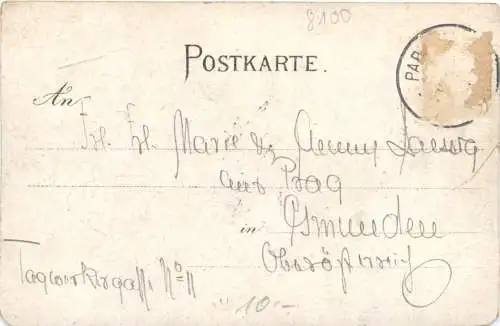 8100
POSTKARTE.
PAR
An
Frl. Frl. Marie & Jenny
aus Prag
in Gmunden
Oberöfterreich
Tagwerkergasse No 11
10.-